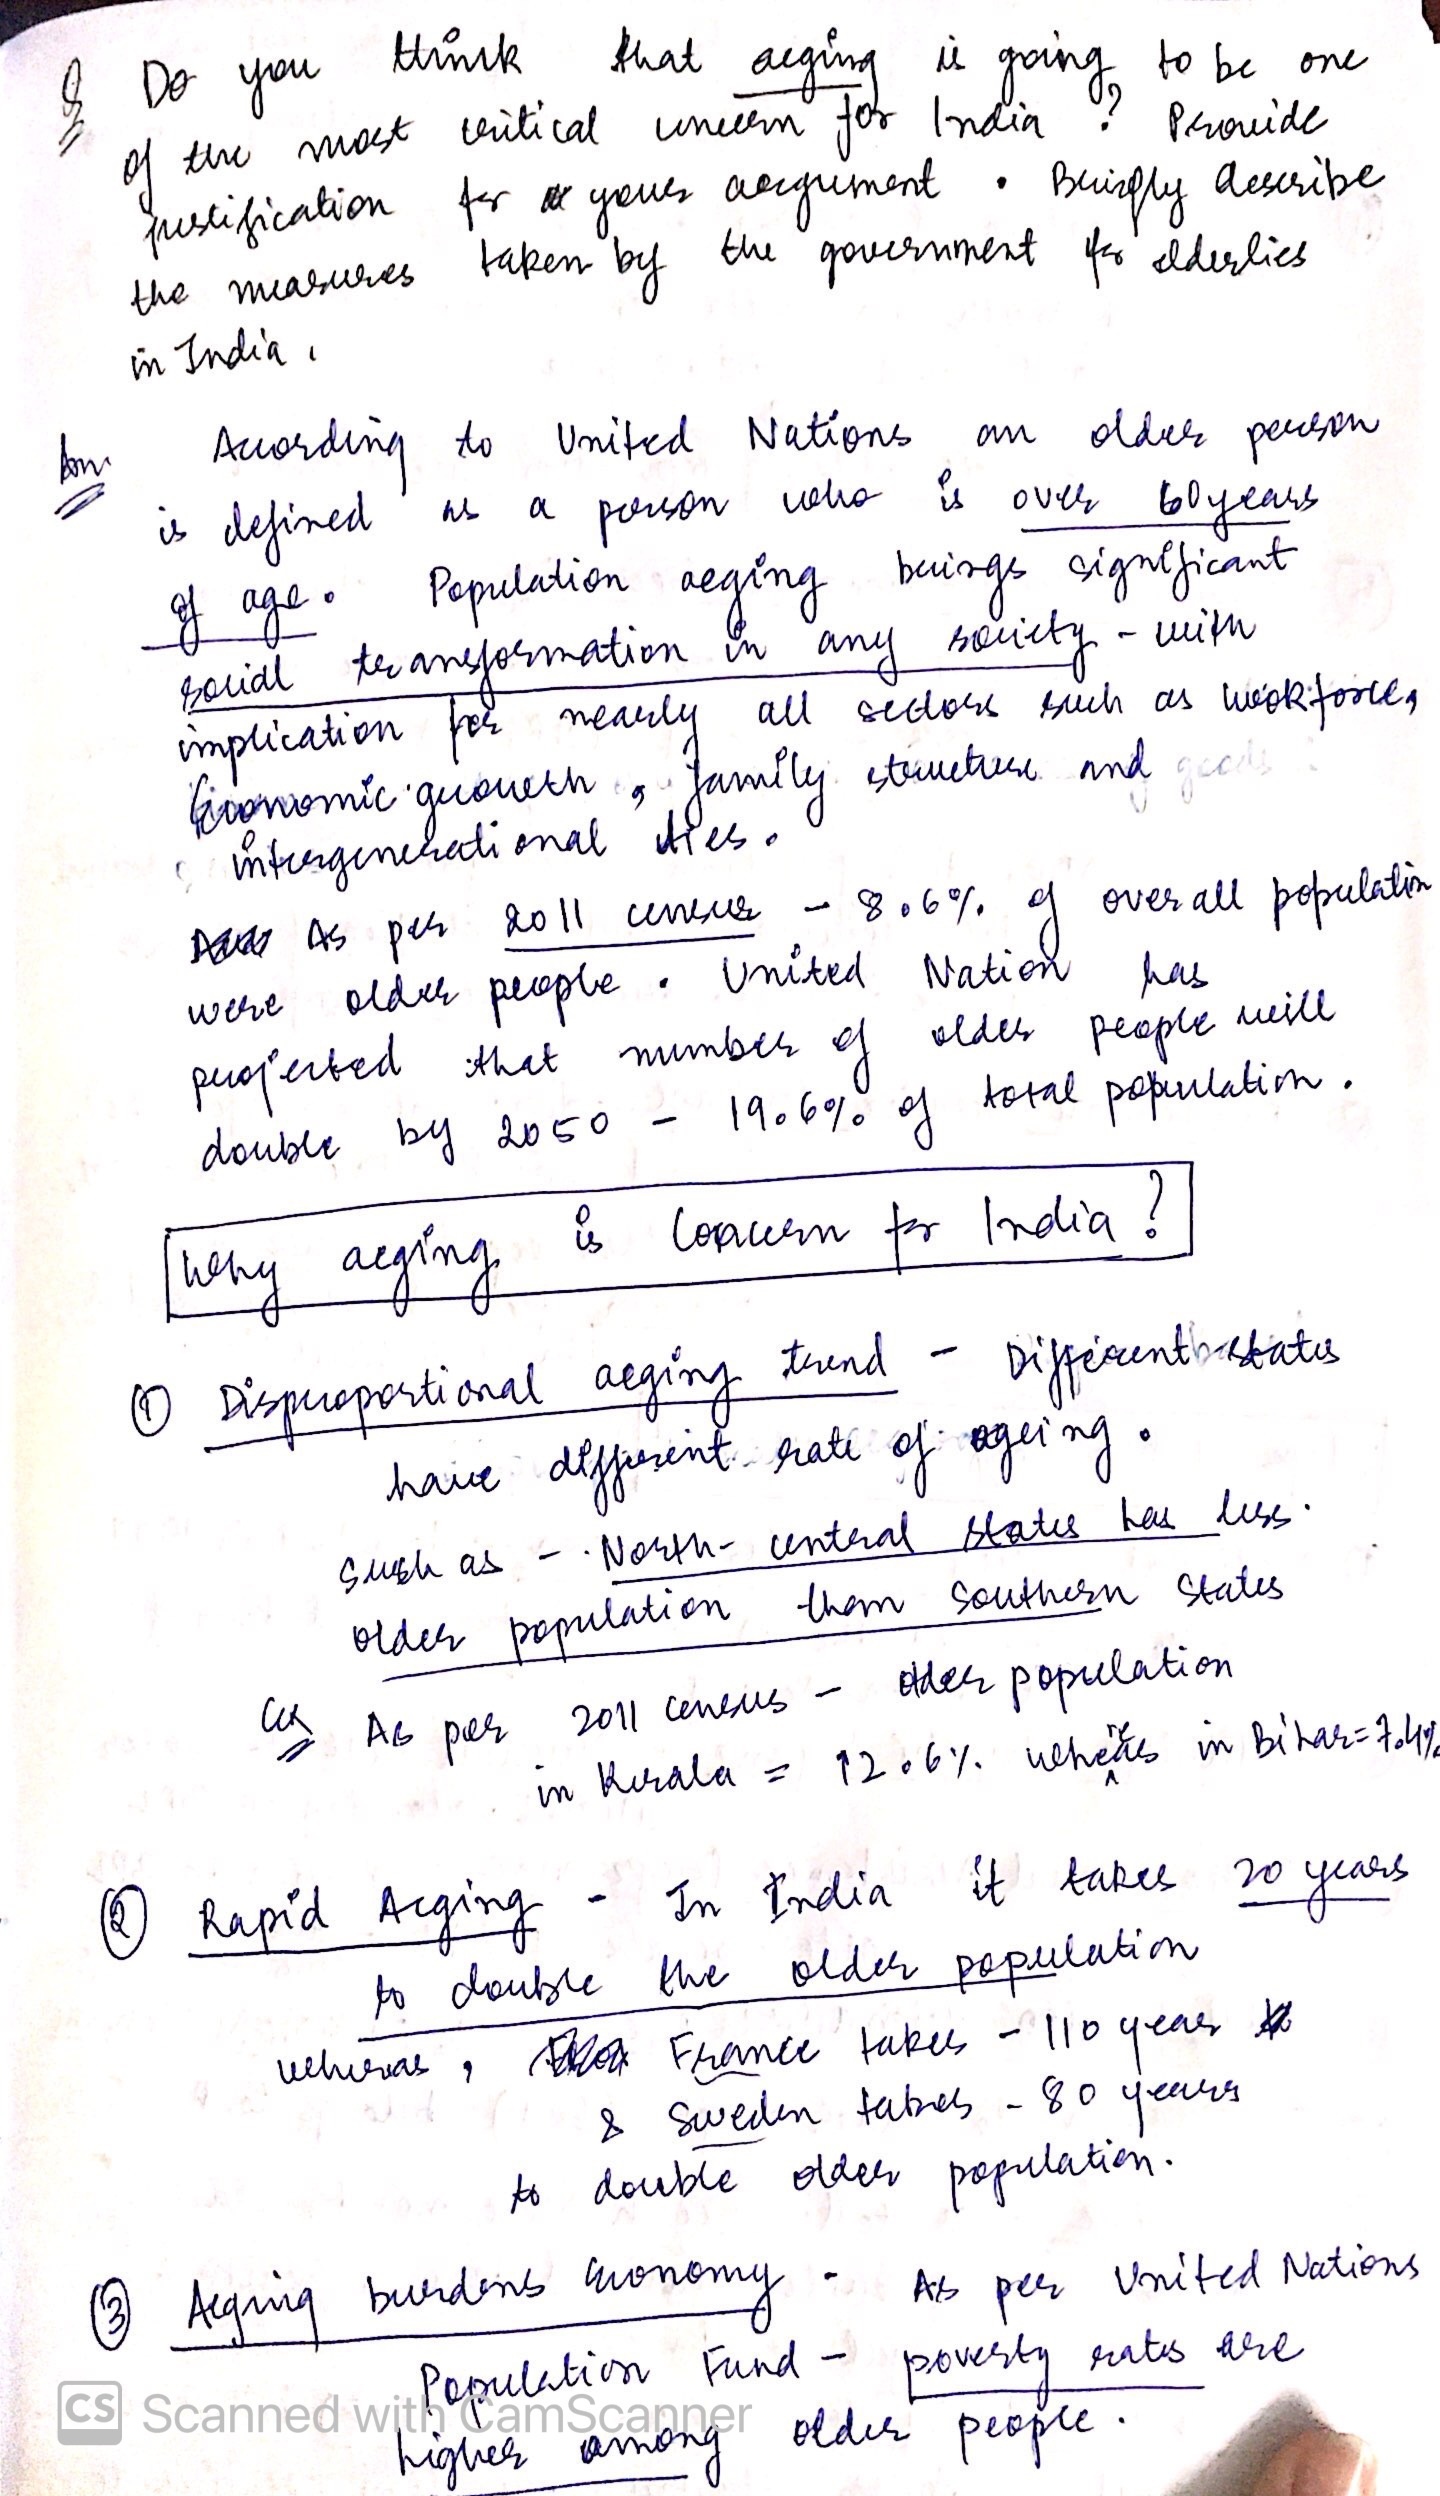 Q Do you think that aeging is going to be one
of the most critical concern for India ? Provide
justification for your aergument . Briefly describe
the measures taken by the government for elderlies
in India .
Ans According to United Nations an older person
is defined as a person who is over 60 years
of age . Population aeging brings significant
social transformation in any society - with
implication for nearly all sectors such as workforce,
Economic growth , family structure and
intergenerational ties .
As per 2011 census - 8.6% of overall population
were older people . United Nation has
projected that number of older people will
double by 2050 - 19.6% of total population .
Why aeging is Concern for India ?
① Disproportional aeging trend - Different states
have different rate of ageing .
Such as - North-central states has less
older population than Southern States
Ex As per 2011 census - older population
in Kerala = 12.6% whereas in Bihar = 7.4%
② Rapid Aeging - In India it takes 20 years
to double the older population
wheras , France takes - 110 year
& Sweden takes - 80 years
to double older population .
③ Aeging burdens Economy - As per United Nations
Population Fund - poverty rates are
higher among older people .
CS Scanned with CamScanner